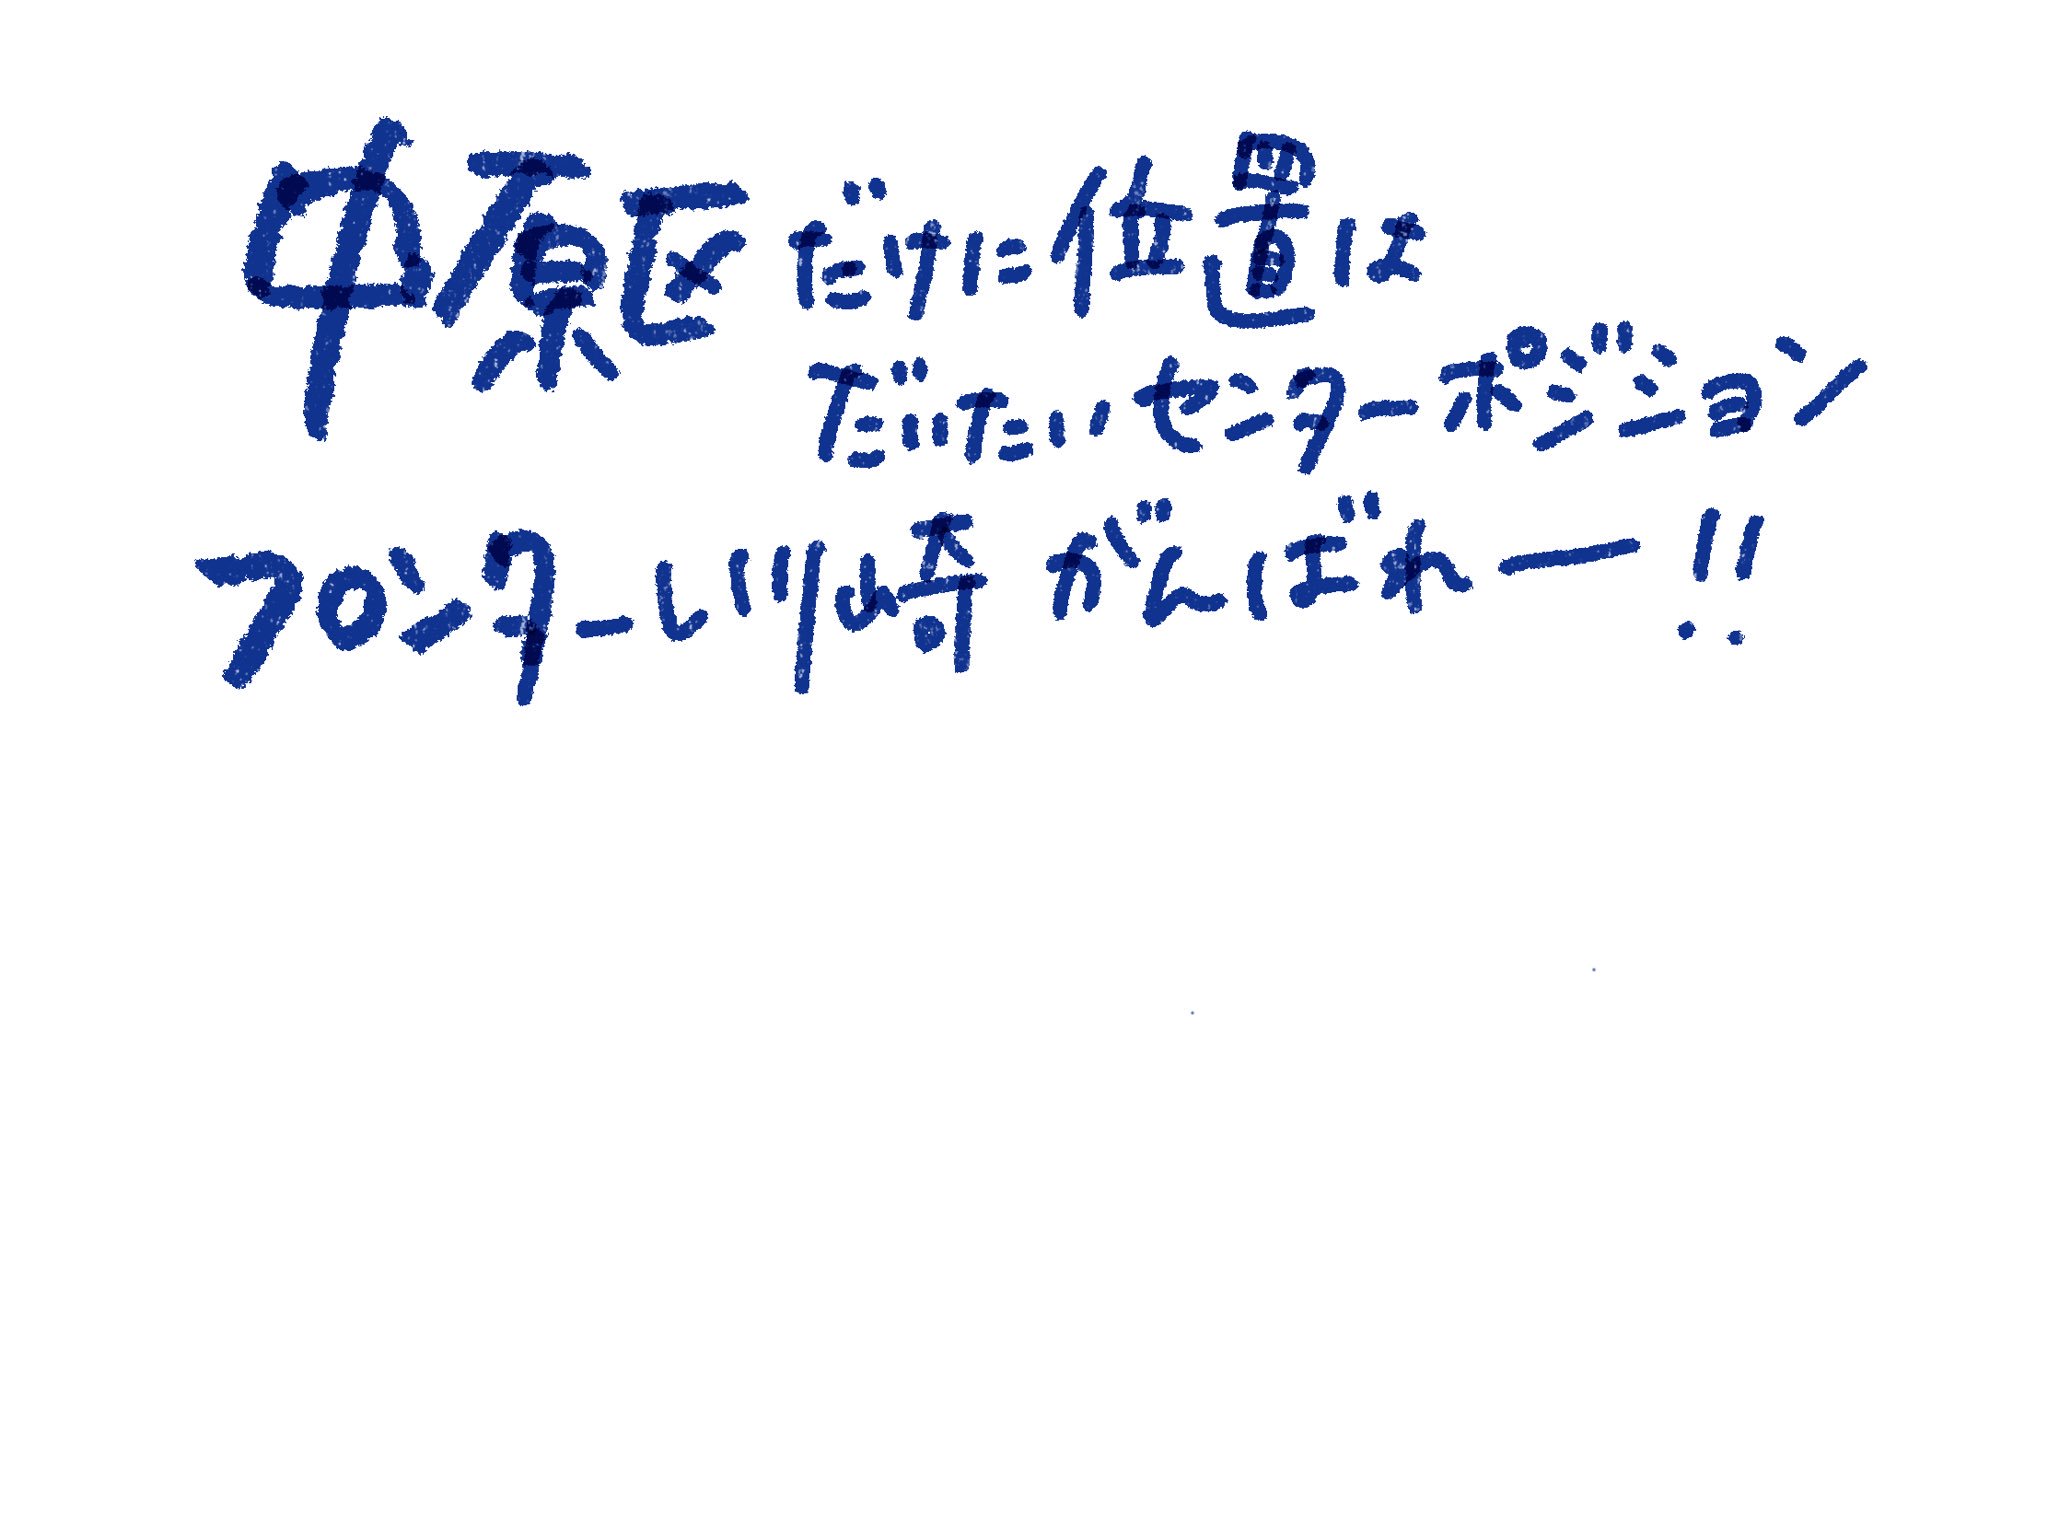 中原区だけに位置は
だいたいセンターポジション
フロンターレ川崎がんばれー!!